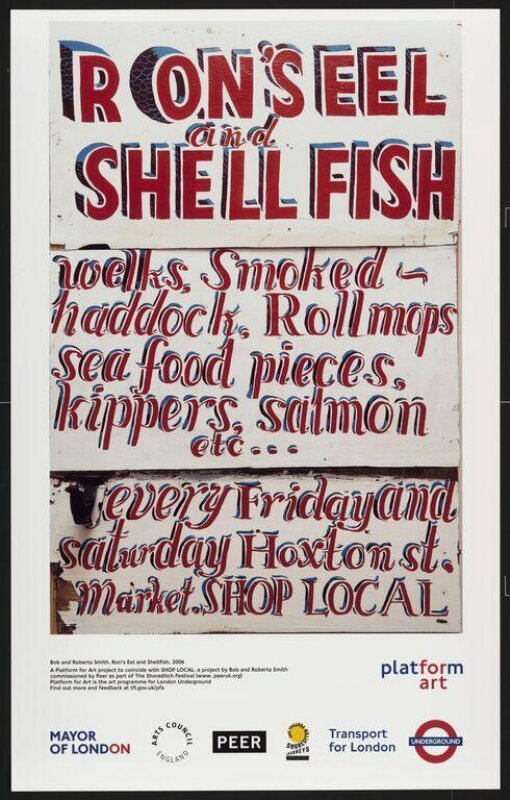 RON'S EEL
and
SHELL FISH
welks, Smoked ~
haddock, Roll mops
sea food pieces,
kippers, salmon
etc...
every Friday and
saturday Hoxton st.
Market. SHOP LOCAL
Bob and Roberta Smith, Ron's Eel and Shellfish, 2006
A Platform for Art project to coincide with SHOP LOCAL, a project by Bob and Roberta Smith
commissioned by Peer as part of The Shoreditch Festival (www. peeruk.org)
Platform for Art is the art programme for London Underground
Find out more and feedback at tfl.gov.uk/pfa
platform
art
MAYOR
OF LONDON
ARTS COUNCIL
ENGLAND
PEER
Transport
for London
UNDERGROUND